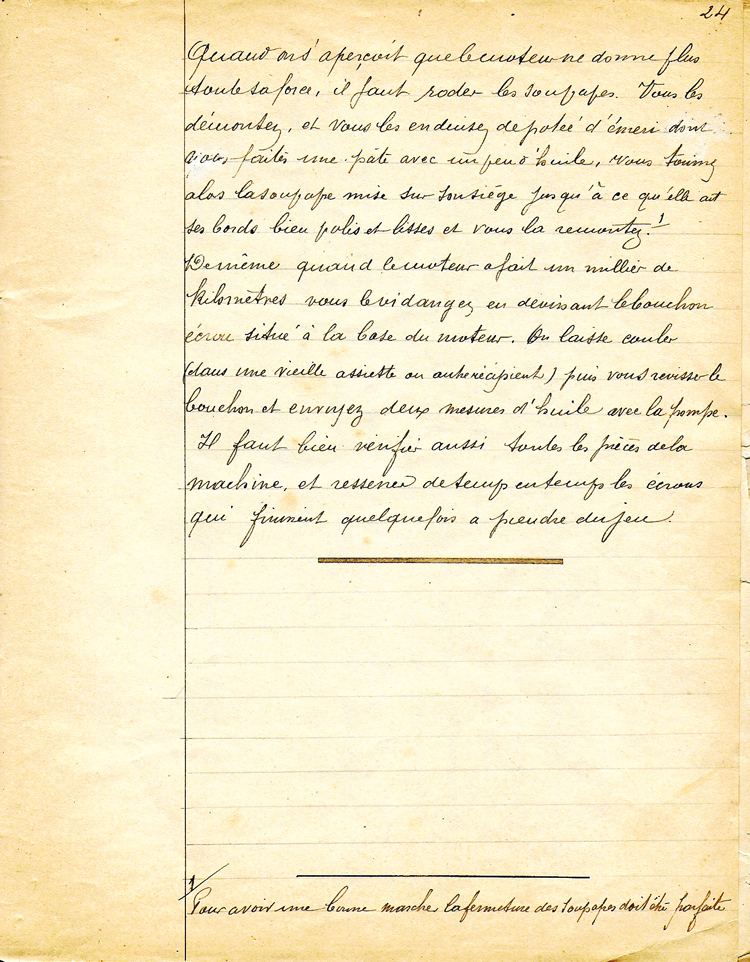 24
Quand on s'aperçoit que le moteur ne donne plus
toute sa force, il faut roder les soupapes. Vous les
démontez, et vous les enduisez de potée d'émeri dont
vous faites une pâte avec un peu d'huile, vous tournez
alos la soupape mise sur son siége jusqu'à ce qu'elle ait
ses bords bien polis et lisses et vous la remontez.¹
De même quand le moteur a fait un millier de
kilomètres vous le vidangez en dévissant le bouchon
écrou situé à la base du moteur. On laisse couler
(dans une vieille assiette ou autre récipient) puis vous revissez le
bouchon et envoyez deux mesures d'huile avec la pompe.
Il faut bien vérifier aussi toutes les pièces de la
machine, et resserrer de temps en temps les écrous
qui finissent quelquefois a prendre du jeu.
1/
Pour avoir une bonne marche la fermeture des soupapes doit être parfaite